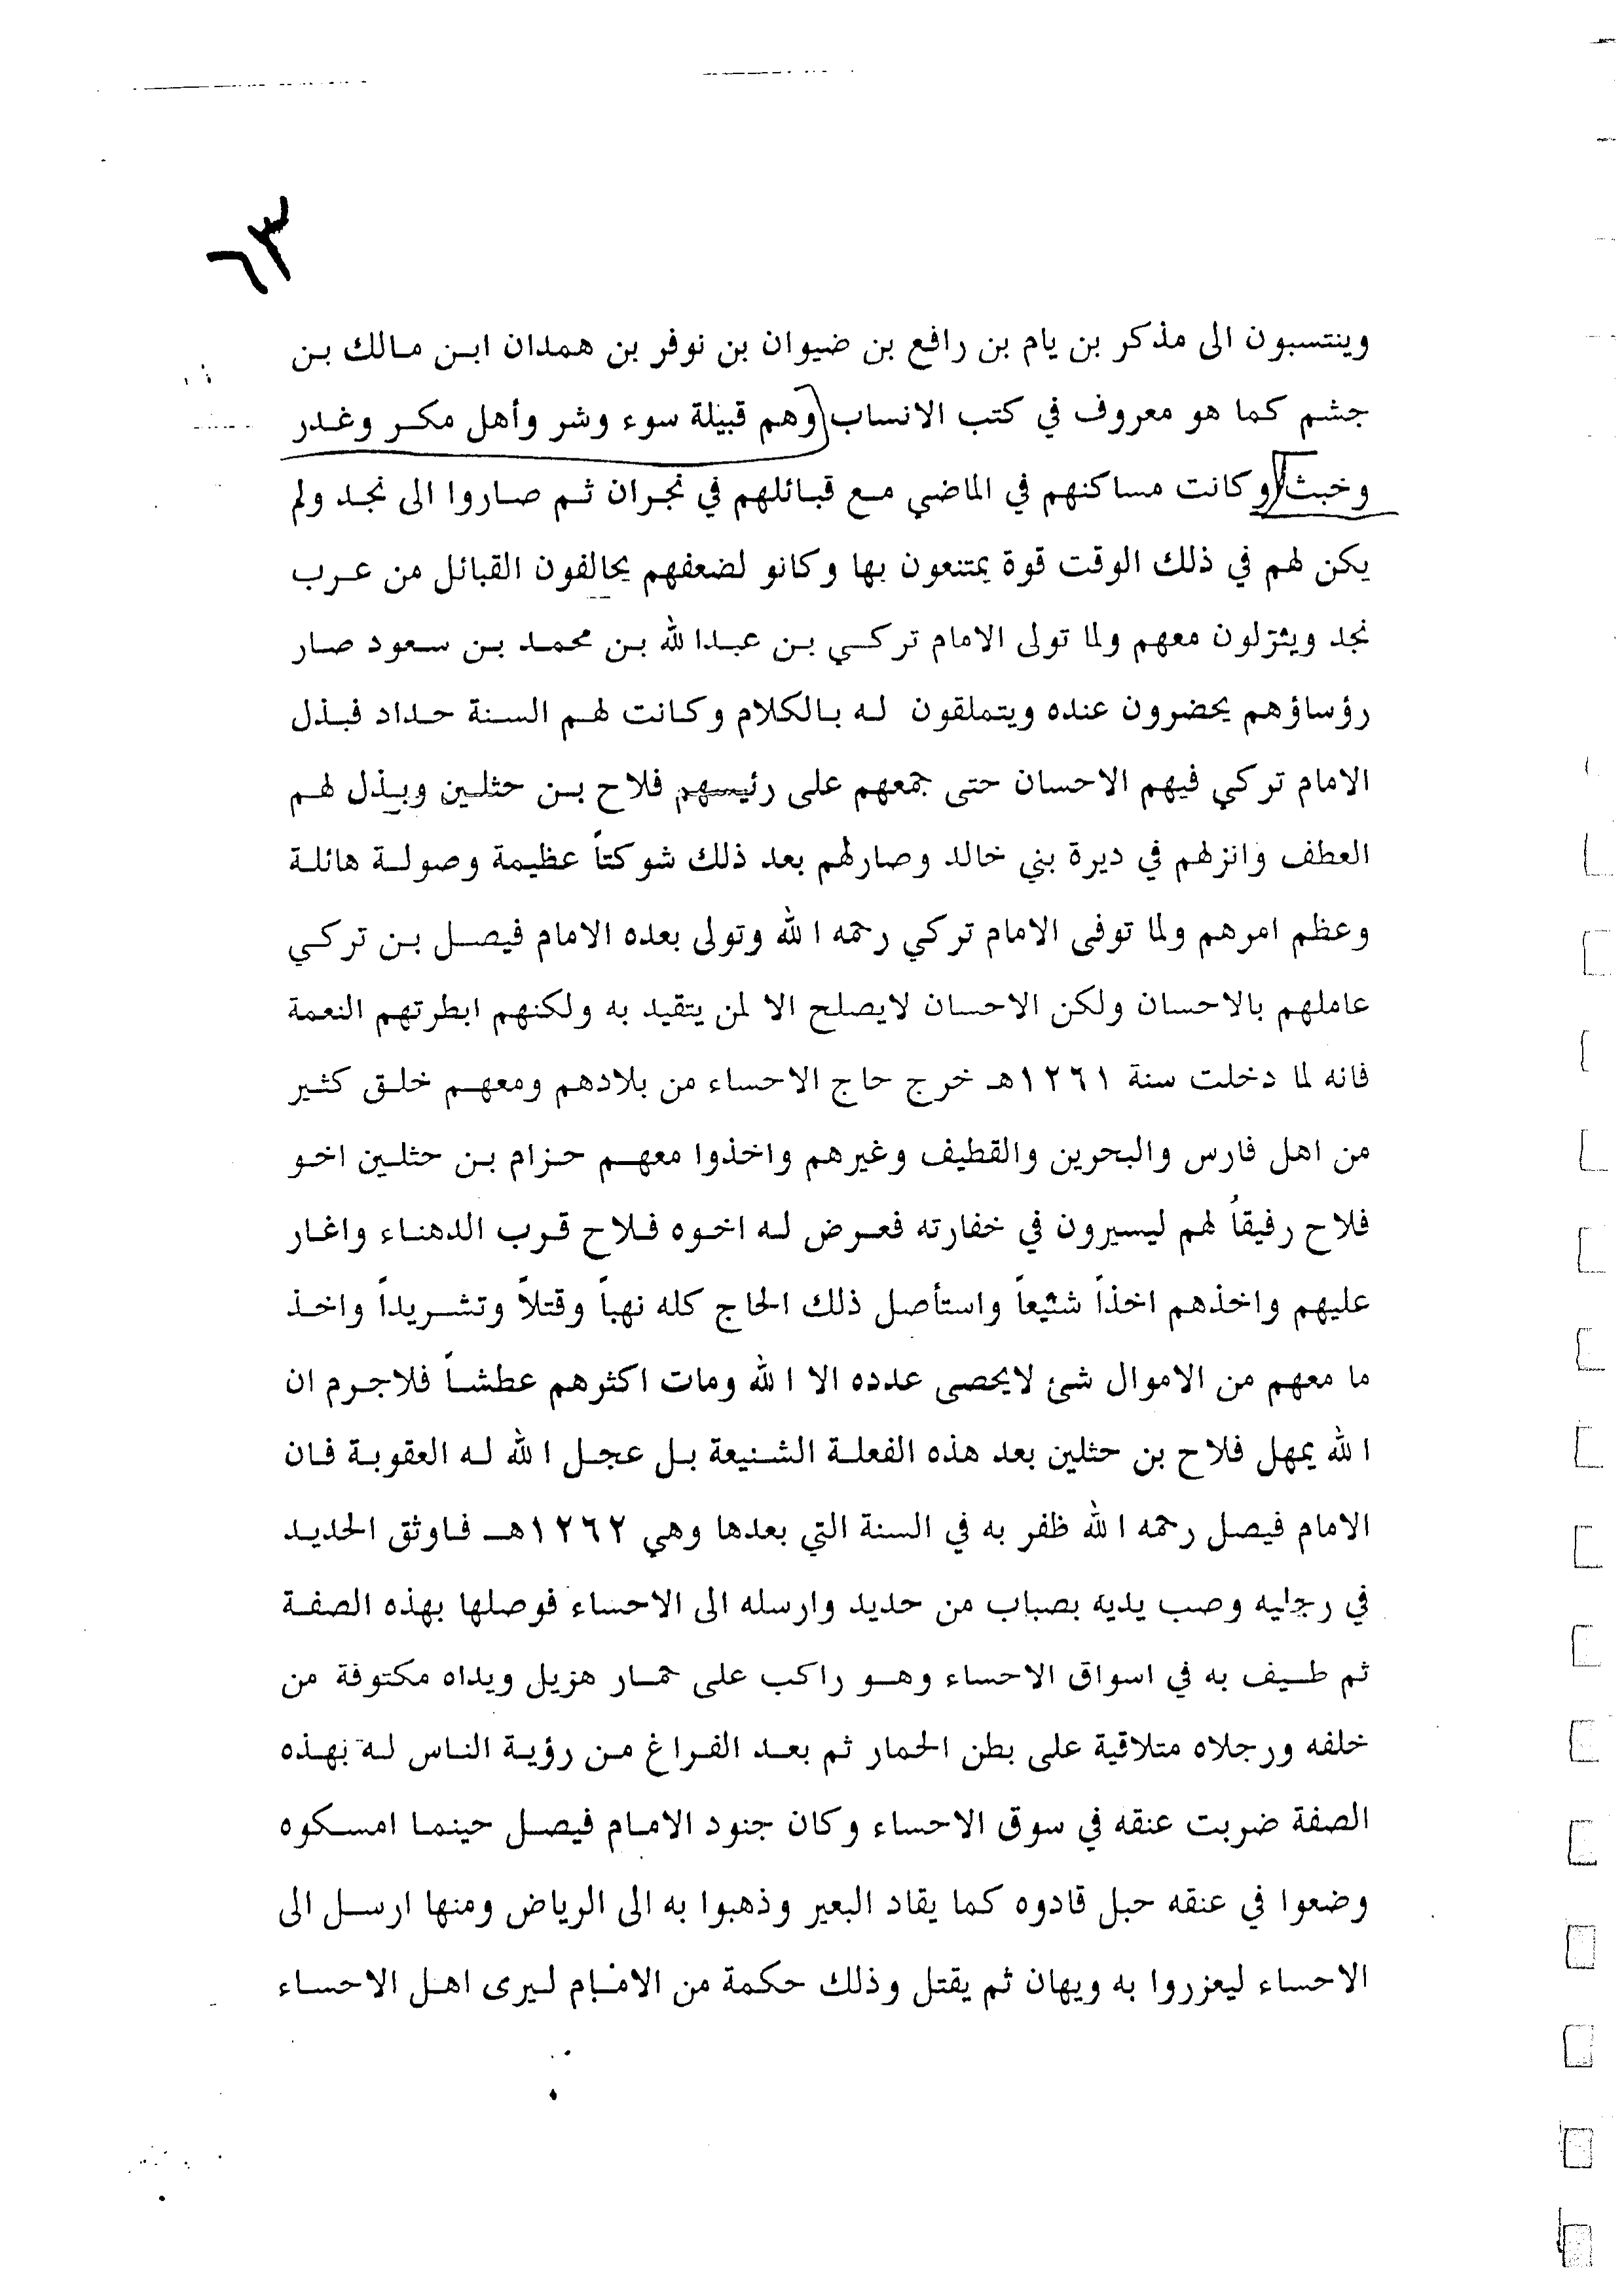 ٦٣
وينتسبون الى مذكر بن يام بن رافع بن ضيوان بن نوفر بن همدان ابن مالك بن
جشم كما هو معروف في كتب الانساب (وهم قبيلة سوء وشر وأهل مكر وغدر
وخبث) وكانت مساكنهم في الماضي مع قبائلهم في نجران ثم صاروا الى نجد ولم
يكن لهم في ذلك الوقت قوة يمتنعون بها وكانو لضعفهم يحالفون القبائل من عرب
نجد وينزلون معهم ولما تولى الامام تركي بن عبدالله بن محمد بن سعود صار
رؤساؤهم يحضرون عنده ويتملقون له بالكلام وكانت لهم السنة حداد فبذل
الامام تركي فيهم الاحسان حتى جمعهم على رئيسهم فلاح بن حثلين وبذل لهم
العطف وانزلهم في ديرة بني خالد وصارلهم بعد ذلك شوكتاً عظيمة وصولة هائلة
وعظم امرهم ولما توفى الامام تركي رحمه الله وتولى بعده الامام فيصل بن تركي
عاملهم بالاحسان ولكن الاحسان لايصلح الا لمن يتقيد به ولكنهم ابطرتهم النعمة
فانه لما دخلت سنة ١٢٦١هـ خرج حاج الاحساء من بلادهم ومعهم خلق كثير
من اهل فارس والبحرين والقطيف وغيرهم واخذوا معهم حزام بن حثلين اخو
فلاح رفيقاً لهم ليسيرون في خفارته فعرض له اخوه فلاح قرب الدهناء واغار
عليهم واخذهم اخذاً شنيعاً واستأصل ذلك الحاج كله نهباً وقتلاً وتشريداً واخذ
ما معهم من الاموال شئ لايحصى عدده الا الله ومات اكثرهم عطشاً فلاجرم ان
الله يمهل فلاح بن حثلين بعد هذه الفعلة الشنيعة بل عجل الله له العقوبة فان
الامام فيصل رحمه الله ظفر به في السنة التي بعدها وهي ١٢٦٢هـ فاوثق الحديد
في رجليه وصب يديه بصباب من حديد وارسله الى الاحساء فوصلها بهذه الصفة
ثم طيف به في اسواق الاحساء وهو راكب على حمار هزيل ويداه مكتوفة من
خلفه ورجلاه متلاقية على بطن الحمار ثم بعد الفراغ من رؤية الناس له بهذه
الصفة ضربت عنقه في سوق الاحساء وكان جنود الامام فيصل حينما امسكوه
وضعوا في عنقه حبل قادوه كما يقاد البعير وذهبوا به الى الرياض ومنها ارسل الى
الاحساء ليعزروا به ويهان ثم يقتل وذلك حكمة من الامام ليرى اهل الاحساء